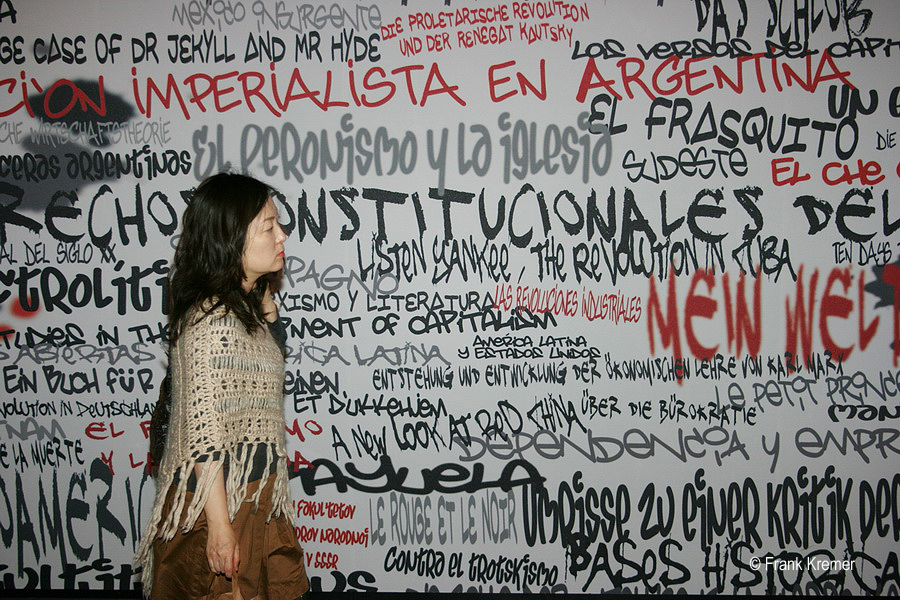 MEXICO INSURGENTE
DIE PROLETARISCHE REVOLUTION
UND DER RENEGAT KAUTSKY
DAS SCHLOß
GE CASE OF DR JEKYLL AND MR HYDE
LOS VERSOS DEL CAPIT
CION IMPERIALISTA EN ARGENTINA
UN
EL FRASQUITO
CHE WIRTSCHAFTSTHEORIE
EL PERONISMO Y LA IGLESIA
DIE
CERAS ARGENTINAS
SUDESTE
EL CHE
RECHOS CONSTITUCIONALES DEL
AL DEL SIGLO XX
LISTEN YANKEE, THE REVOLUTION IN CUBA
TEN DAYS
CTROLITI
XISMO Y LITERATURA
LAS REVOLUCIONES INDUSTRIALES
MEIN WELT
TUDIES IN THE
PMENT OF CAPITALISM
S ABIERTAS
RICA LATINA
AMERICA LATINA
Y ESTADOS UNIDOS
EIN BUCH FÜR
EINEN
ENTSTEHUNG UND ENTWICKLUNG DER ÖKONOMISCHEN LEHRE VON KARL MARX
LE PETIT PRINCE
VOLUTION IN DEUTSCHLAN
ET DUKKEHJEM
A NEW LOOK AT RED CHINA
ÜBER DIE BÜROKRATIE
MAN
NAM
EL
MO
DEPENDENCIA Y EMPR
E LA MUERTE
Y LA
RAYUELA
PAMER
FAKUL'TETOV
OROV NARODNOI
V SSSR
LE ROUGE ET LE NOIR
UMRISSE ZU EINER KRITIK DER
CONTRA EL TROTSKISMO
BASES HISTORICA
© Frank Kremer